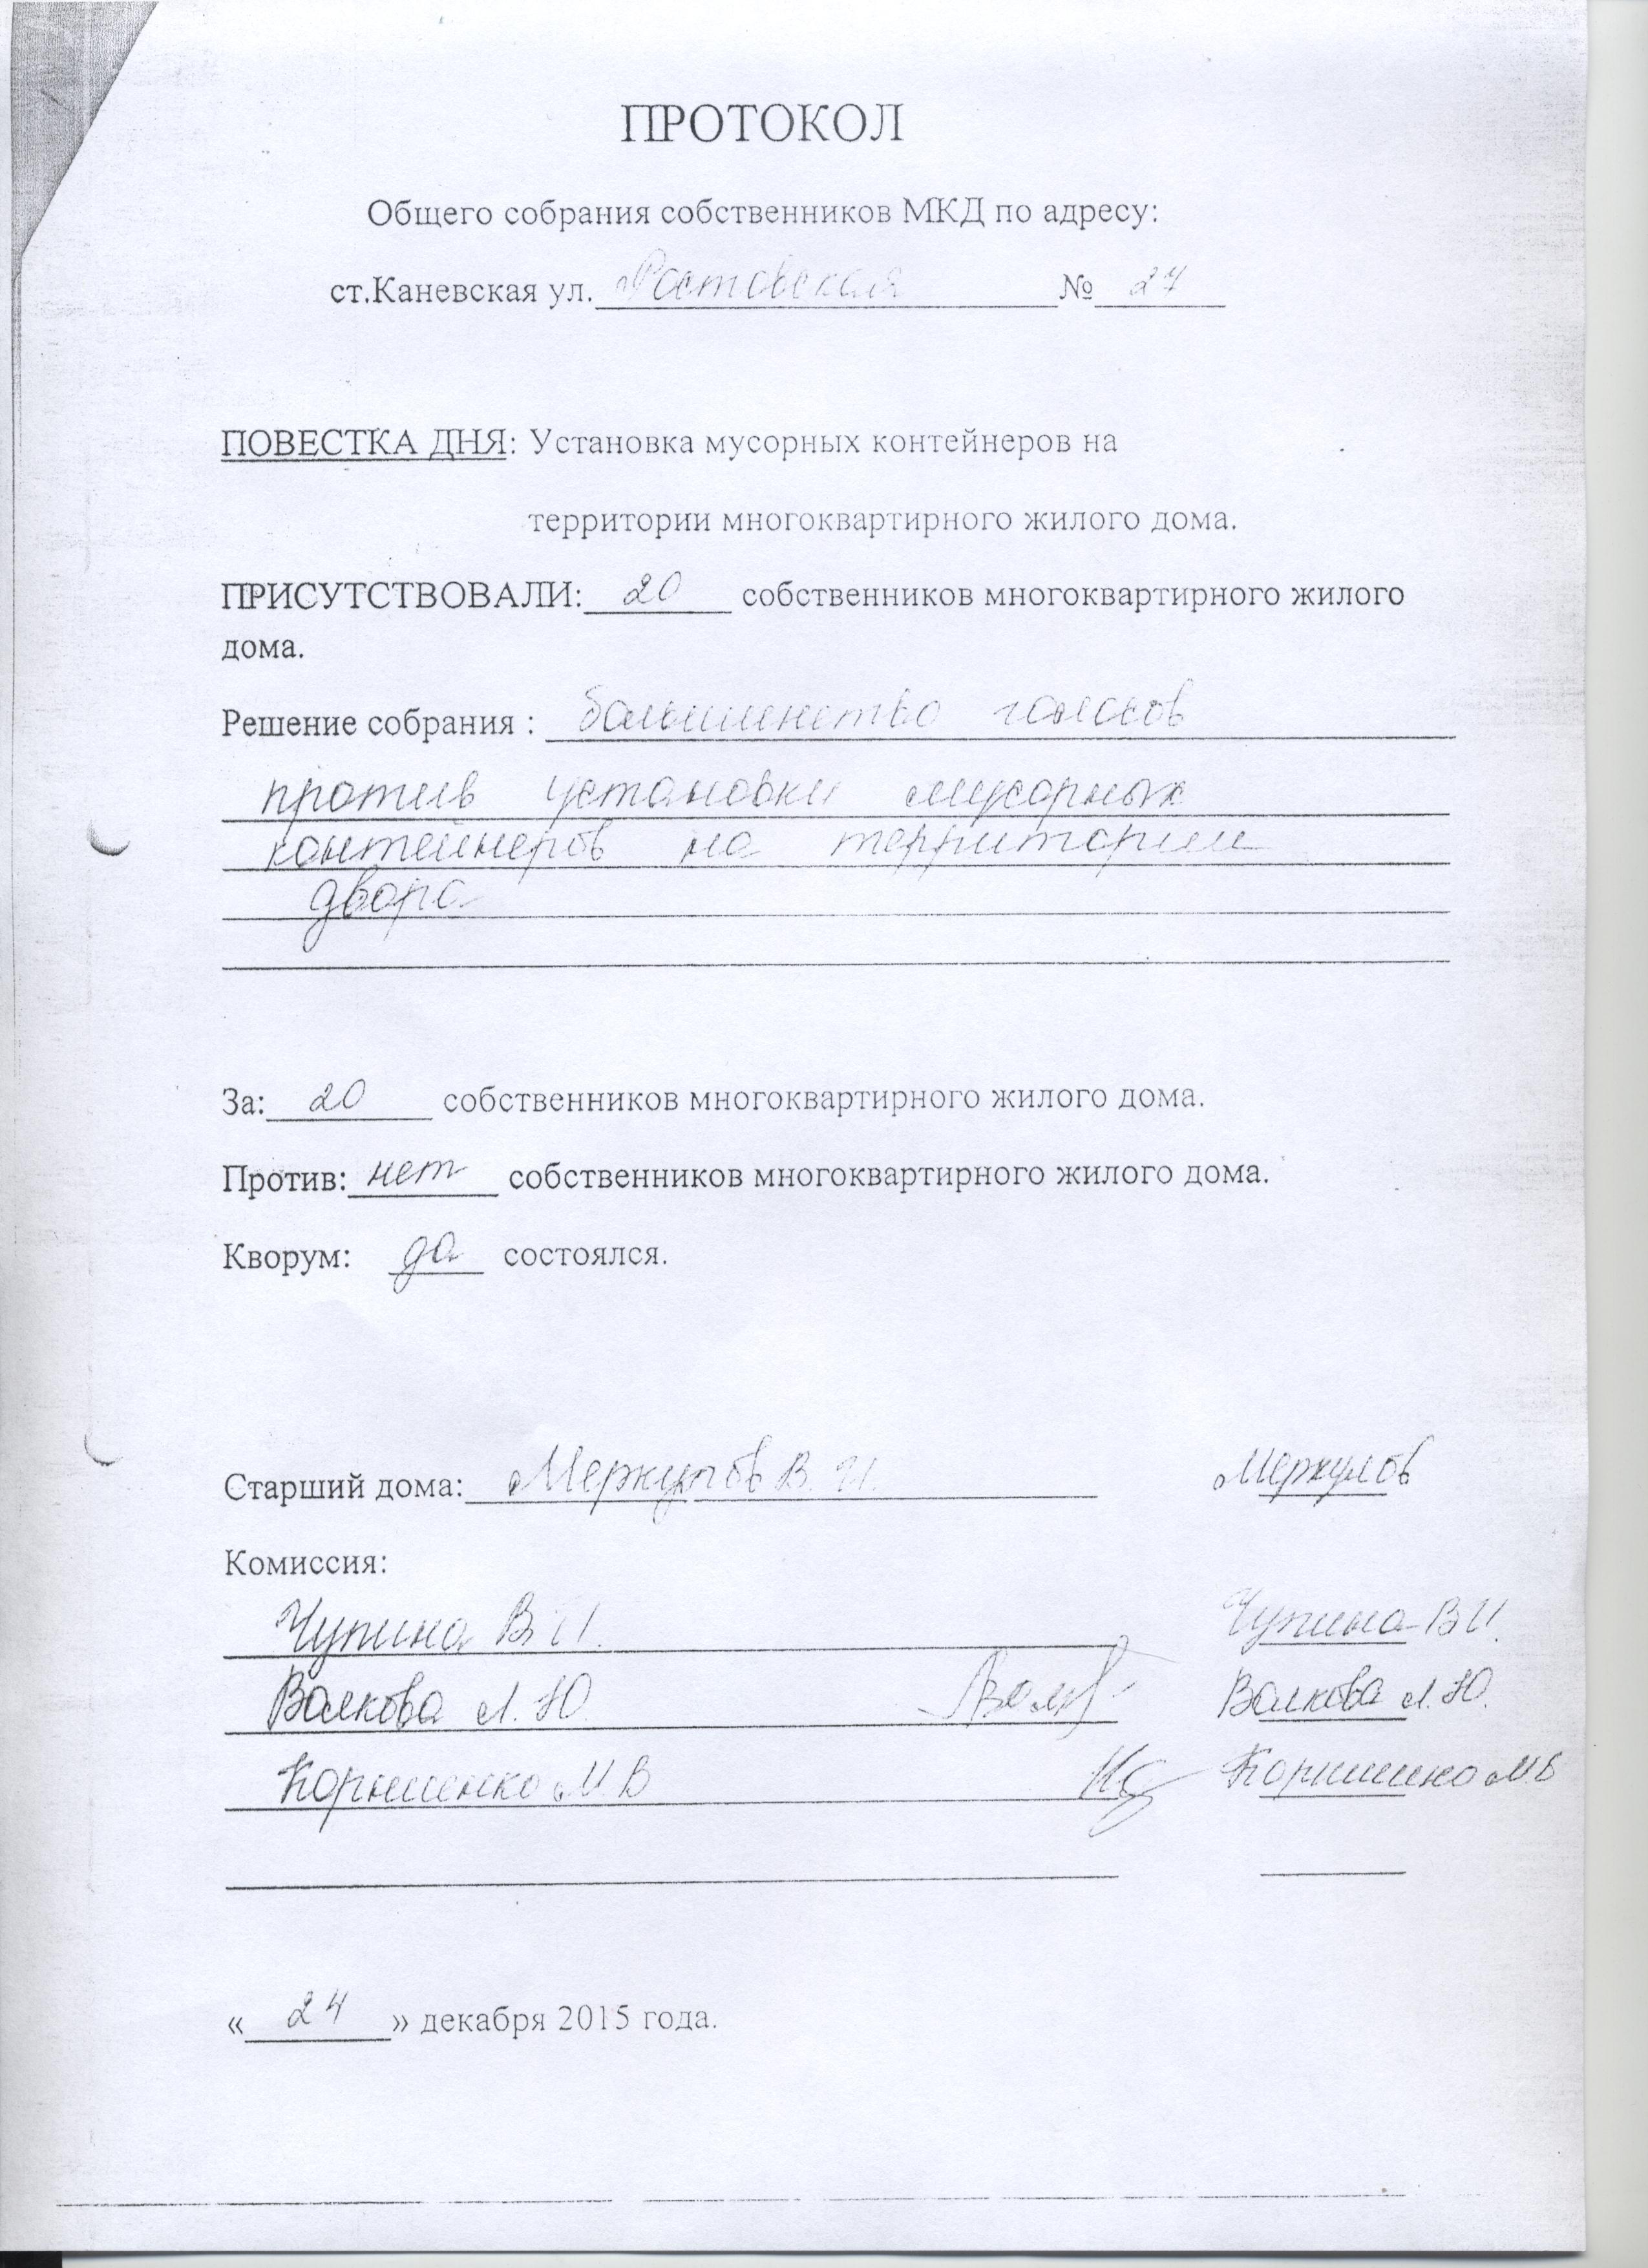 ПРОТОКОЛ
Общего собрания собственников МКД по адресу:
ст.Каневская ул. Ростовская № 27
ПОВЕСТКА ДНЯ: Установка мусорных контейнеров на
территории многоквартирного жилого дома.
ПРИСУТСТВОВАЛИ: 20 собственников многоквартирного жилого
дома.
Решение собрания : большинство голосов
против установки мусорных
контейнеров на территории
двора
За: 20 собственников многоквартирного жилого дома.
Против: нет собственников многоквартирного жилого дома.
Кворум: да состоялся.
Старший дома: Меркулов В. И. Меркулов
Комиссия:
Чупина В И. Чупина В И.
Волкова Л. Ю. Волкова Л. Ю.
М. В М В
« 24 » декабря 2015 года.